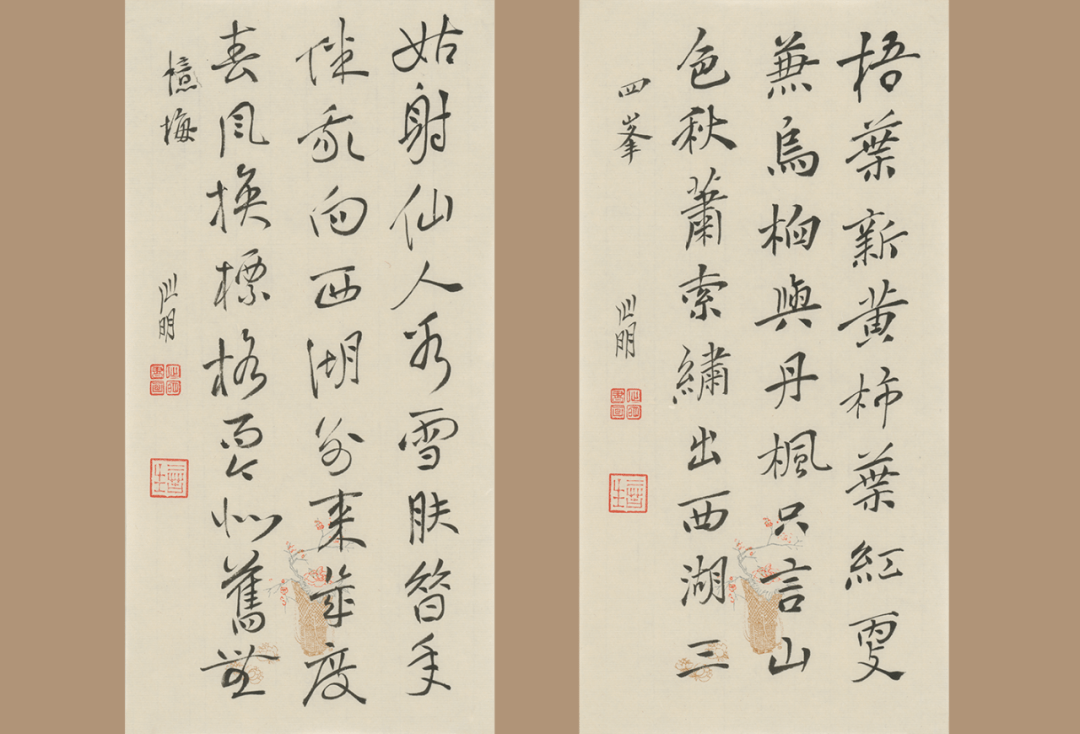 梧葉新黃柿葉紅更
兼烏桕與丹楓只言山
色秋蕭索繡出西湖三
四峯
姑射仙人冰雪肤昔年
伴我向西湖别来幾度
春风换標格而今似舊無
憶梅